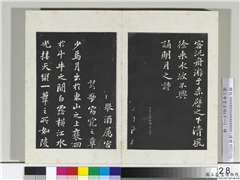 客泛舟游于赤壁之下清風
徐來水波不興
誦明月之詩
舉酒屬客
歌窈窕之章
少焉月出於東山之上裴回
於斗牛之間白露横江水
光接天縱一葦之所如陵
28